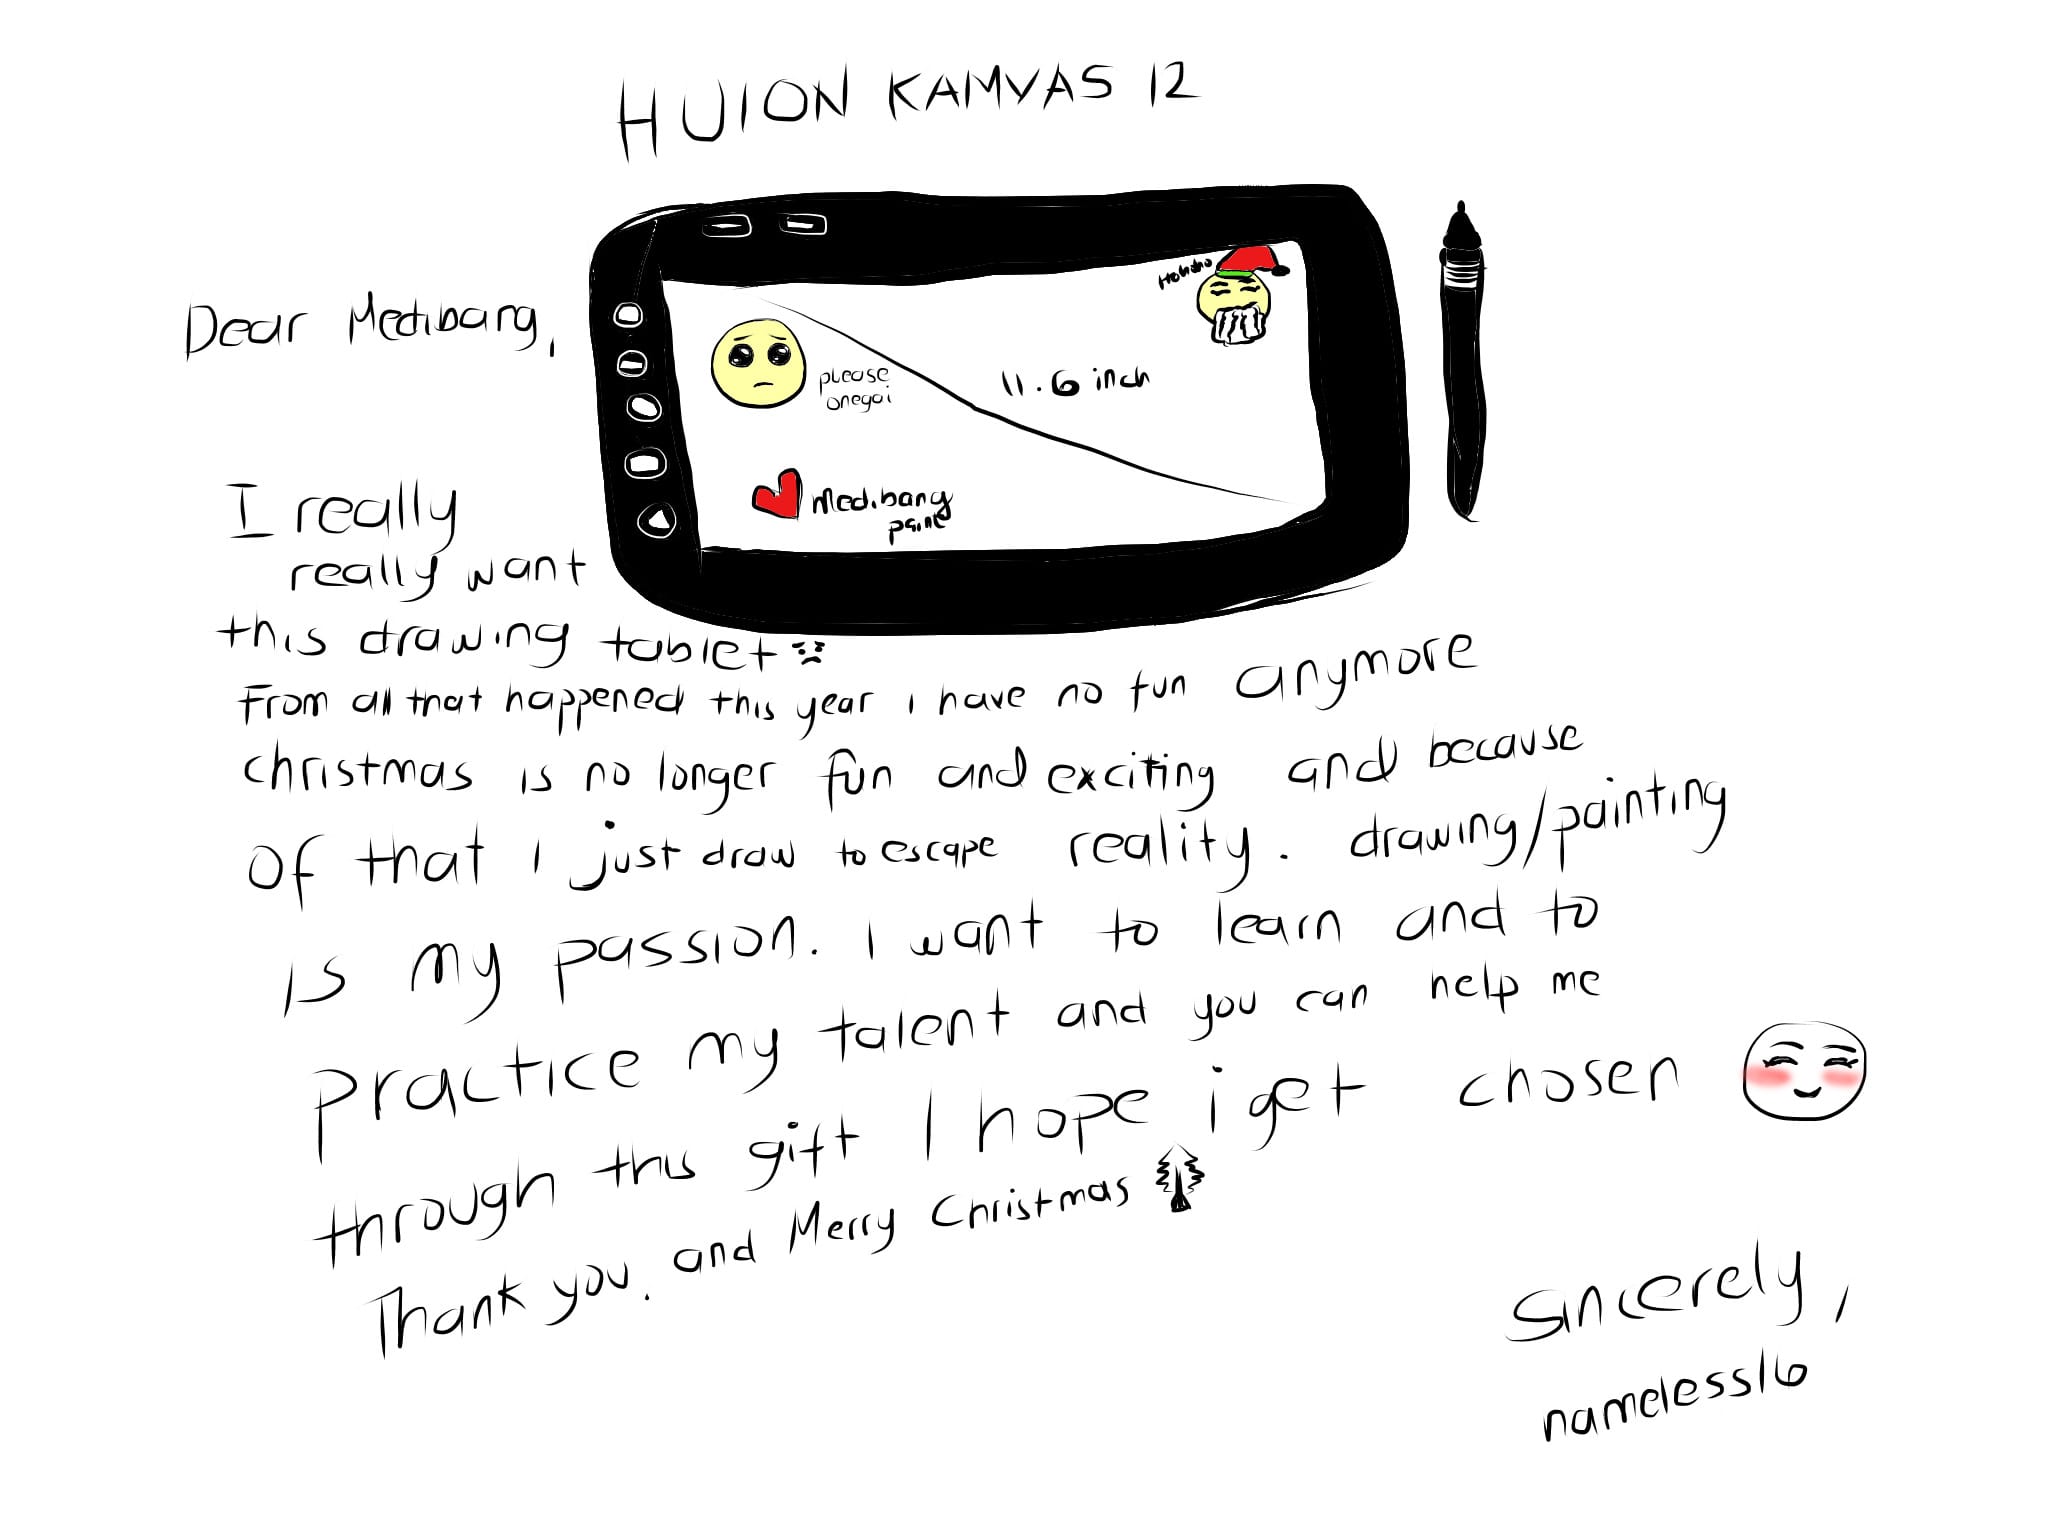 HUION KAMVAS 12
Hohoho
Dear Medibang,
please
onegai
11.6 inch
Medibang
paint
I really
really want
this drawing tablet
From all that happened this year i have no fun anymore
christmas is no longer fun and exciting and because
of that I just draw to escape reality. drawing/painting
is my passion. I want to learn and to
practice my talent and you can help me
through this gift I hope i get chosen
Thank you. and Merry Christmas
Sincerely,
nameless16